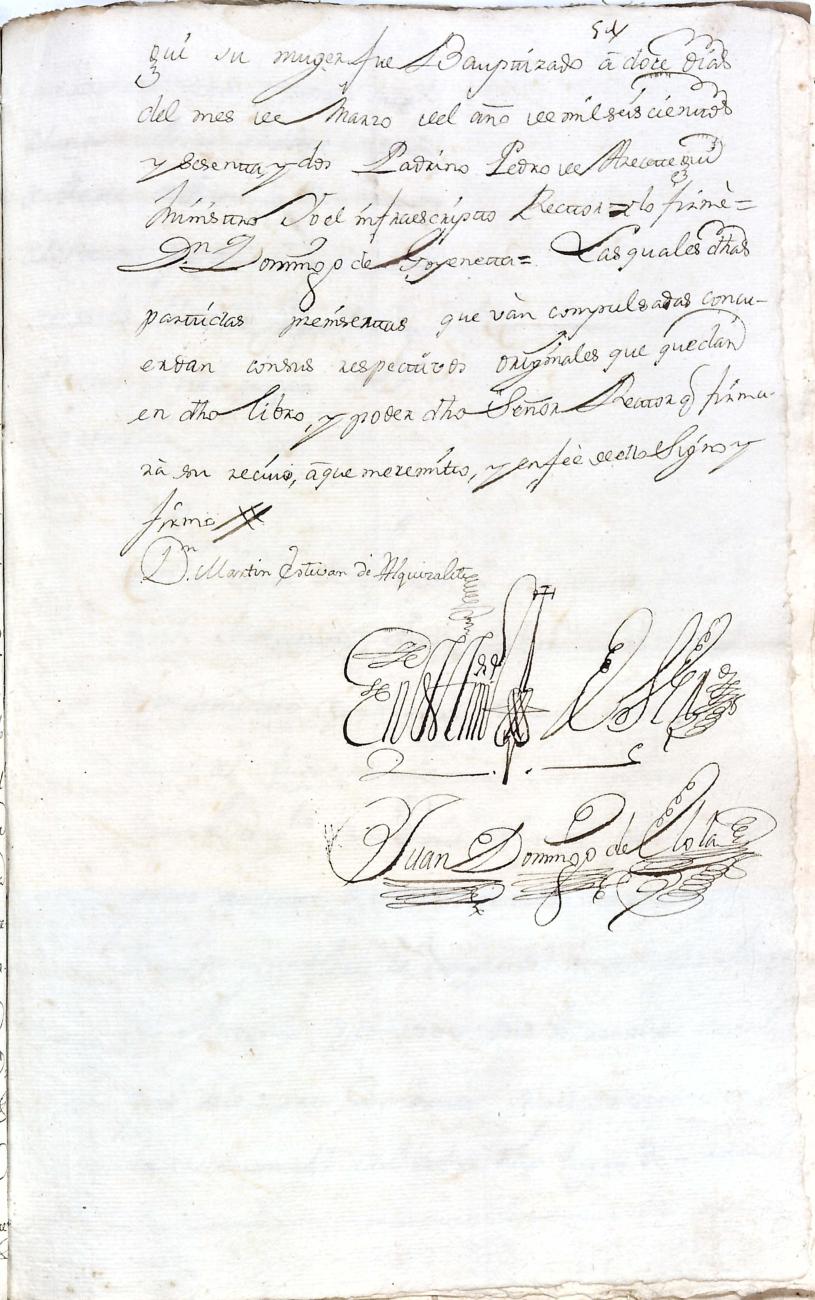 54
qui su muger fue Bauptizado â doce dias
del mes de Marzo del año de mil seis cientos
y sesenta y dos Padrino Pedro de Arecettequi
Ministro Yo el infraescripto Rector y lo firmè =
Dn. Domingo de Goyenetta = Las quales dhas
partidas preinsertas que vàn compulsadas concu-
erdan con sus respectivos originales que quedan
en dho Libro, y poder dho Señor Rector q firma-
rà su recivo, â que me remito, y en feè de ello Signo y
firmo
Dn. Martin Estevan de Alquizalete
En testimo de Vd.
Juan Domingo de Olola